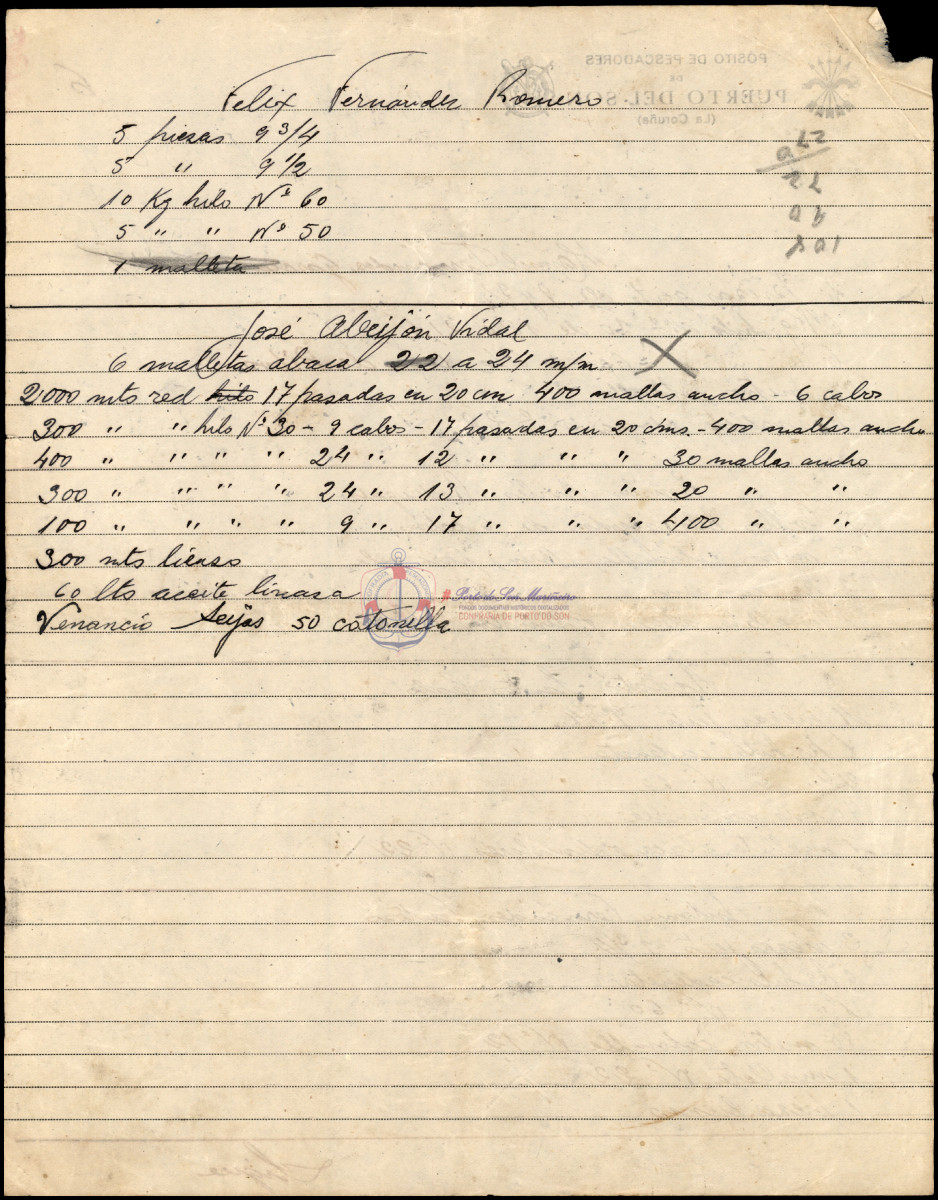 Felix Fernández Romero
5 piezas 9 3/4
5 " 9 1/2
10 Kg hilo Nº 60
5 " " Nº 50
1 malleta
José Abeijón Vidal
6 malletas abaca 22 a 24 m/m
2000 mts red hilo 17 pasadas en 20 cm 400 mallas ancho - 6 cabos
300 " " hilo Nº 30 - 9 cabos - 17 pasadas en 20 cms. - 400 mallas ancho
400 " " " " 24 " 12 " " " 30 mallas ancho
300 " " " " 24 " 13 " " " 20 " "
100 " " " " 9 " 17 " " " 400 " "
300 mts lienso
60 lts aceite linasa
Venancio Seijas 50 cotonilla
#PortodoSonMariñeiro
FONDOS DOCUMENTAIS HISTÓRICOS DIXITALIZADOS
CONFRARÍA DE PORTO DO SON
PÓSITO DE PESCADORES
DE
PUERTO DEL SON
(La Coruña)